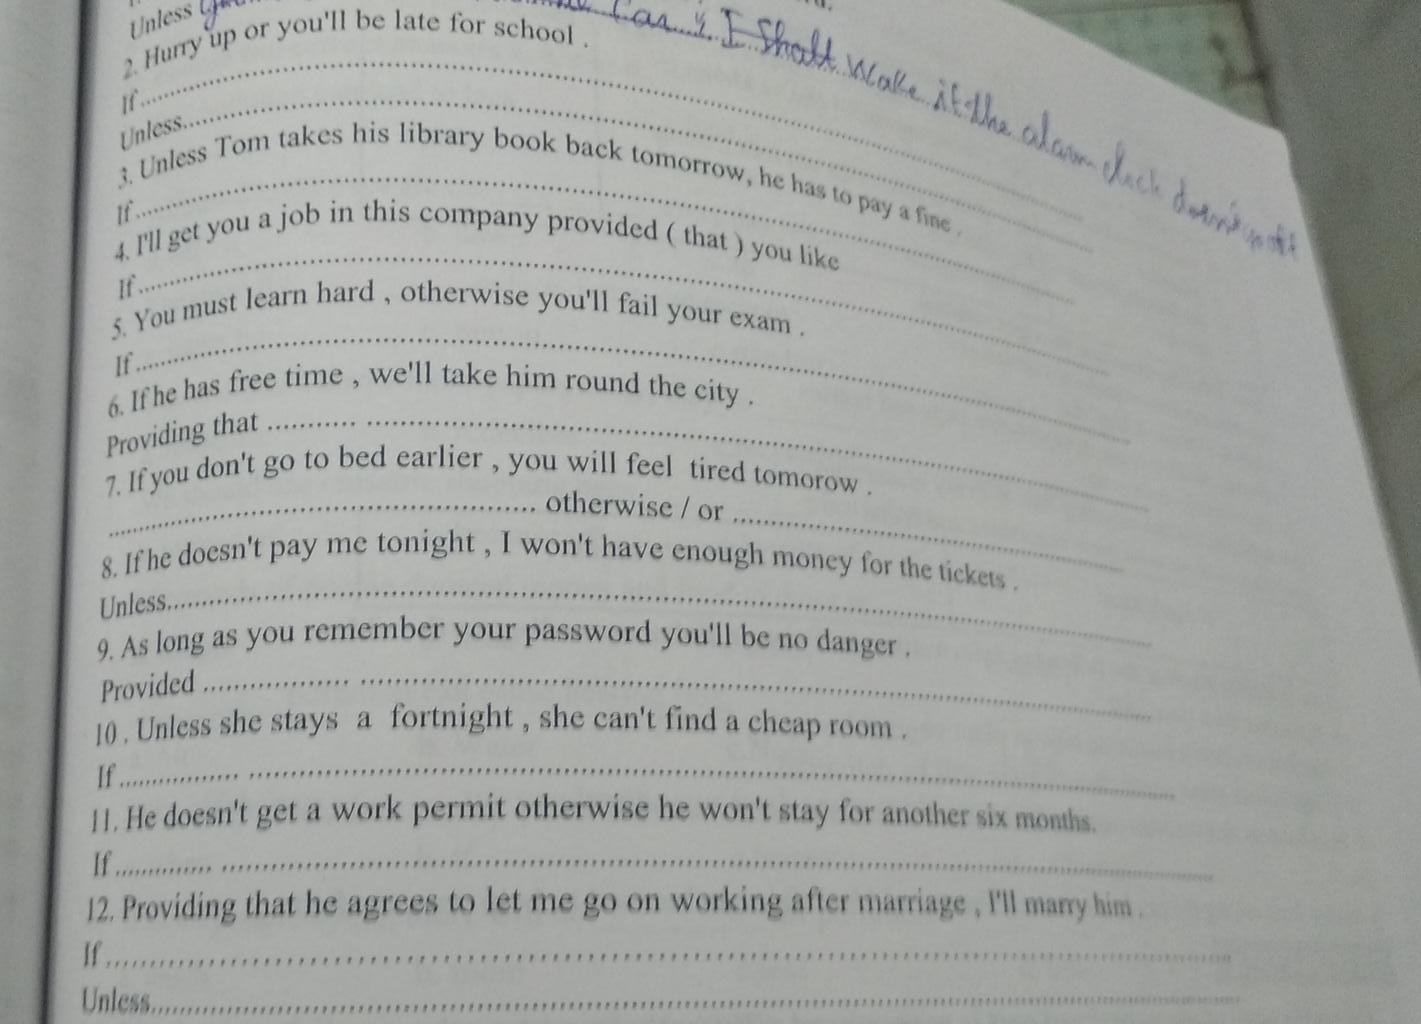 Unless
I shall wake if the alarm clock doesn't
2. Hurry up or you'll be late for school .
If..........
Unless..........
3. Unless Tom takes his library book back tomorrow, he has to pay a fine .
If..........
4. I'll get you a job in this company provided ( that ) you like
If..........
5. You must learn hard , otherwise you'll fail your exam .
If..........
6. If he has free time , we'll take him round the city .
Providing that ..........
7. If you don't go to bed earlier , you will feel tired tomorow .
.......... otherwise / or ..........
8. If he doesn't pay me tonight , I won't have enough money for the tickets .
Unless..........
9. As long as you remember your password you'll be no danger .
Provided ..........
10 . Unless she stays a fortnight , she can't find a cheap room .
If..........
11. He doesn't get a work permit otherwise he won't stay for another six months.
If..........
12. Providing that he agrees to let me go on working after marriage , I'll marry him .
If..........
Unless..........